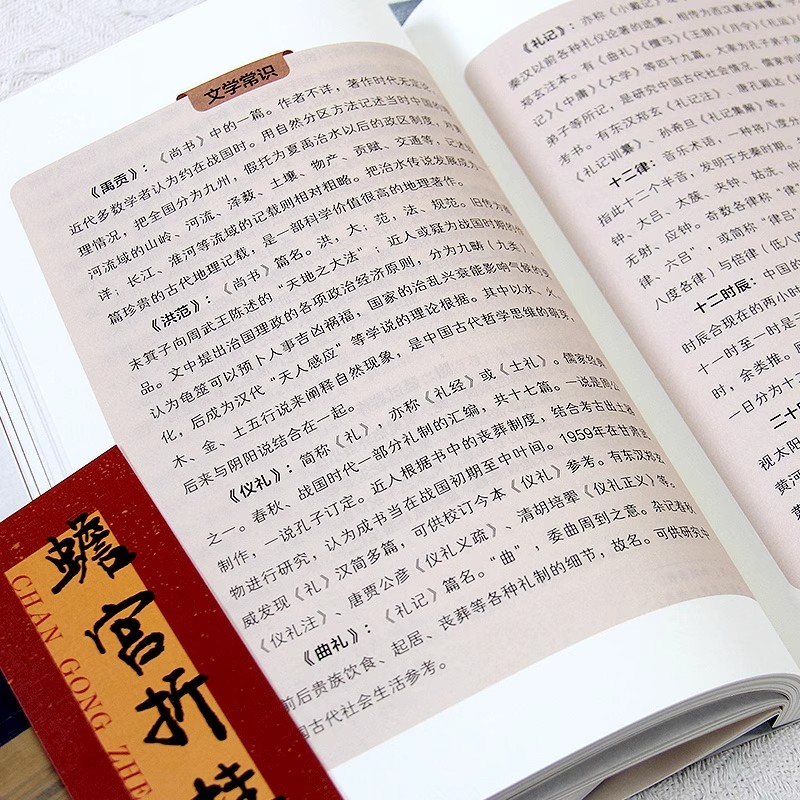 文学常识
《禹贡》：《尚书》中的一篇。作者不详，著作时代无定论，
近代多数学者认为约在战国时。用自然分区方法记述当时中国的地
理情况，把全国分为九州，假托为夏禹治水以后的政区制度，对黄
河流域的山岭、河流、泽薮、土壤、物产、贡赋、交通等，记述较
详；长江、淮河等流域的记载则相对粗略。把治水传说发展成为一
篇珍贵的古代地理记载，是一部科学价值很高的地理著作。
《洪范》：《尚书》篇名。洪，大；范，法、规范。旧传为商
末箕子向周武王陈述的“天地之大法”；近人或疑为战国时期的作
品。文中提出治国理政的各项政治经济原则，分为九畴（九类），
认为龟筮可以预卜人事吉凶祸福，国家的治乱兴衰能影响气候的变
化，后成为汉代“天人感应”等学说的理论根据。其中以水、火、
木、金、土五行说来阐释自然现象，是中国古代哲学思维的萌芽，
后来与阴阳说结合在一起。
《仪礼》：简称《礼》，亦称《礼经》或《士礼》。儒家经典
之一。春秋、战国时代一部分礼制的汇编，共十七篇。一说是周公
制作，一说孔子订定。近人根据书中的丧葬制度，结合考古出土器
物进行研究，认为成书当在战国初期至中叶间。1959年在甘肃武
威发现《礼》汉简多篇，可供校订今本《仪礼》参考。有东汉郑玄
《仪礼注》、唐贾公彦《仪礼义疏》、清胡培翚《仪礼正义》等。
《曲礼》：《礼记》篇名。“曲”，委曲周到之意。杂记春秋
前后贵族饮食、起居、丧葬等各种礼制的细节，故名。可供研究中
国古代社会生活参考。
《礼记》：亦称《小戴记》
秦汉以前各种礼仪论著的选集，相传为西汉戴圣编纂
郑玄注本。有《曲礼》《檀弓》《王制》《月令》《礼运》
记》《中庸》《大学》等四十九篇，大率为孔子弟子及
弟子等所记，是研究中国古代社会情况、儒家学
考书。有东汉郑玄《礼记注》、唐孔颖达《礼
《礼记训纂》、孙希旦《礼记集解》等。
十二律：音乐术语，一种将八度分
指此十二个半音，发明于先秦时期。
钟、大吕、太簇、夹钟、姑洗、仲
无射、应钟。奇数各律称“律
律、六吕”，或简称“律吕
八度各律）与倍律（低八度
十二时辰：中国的
时辰合现在的两小时
十一时至一时是子
时，余类推。
一日分为十
二十
视太阳
黄河
蟾宫折桂
CHAN GONG ZHE